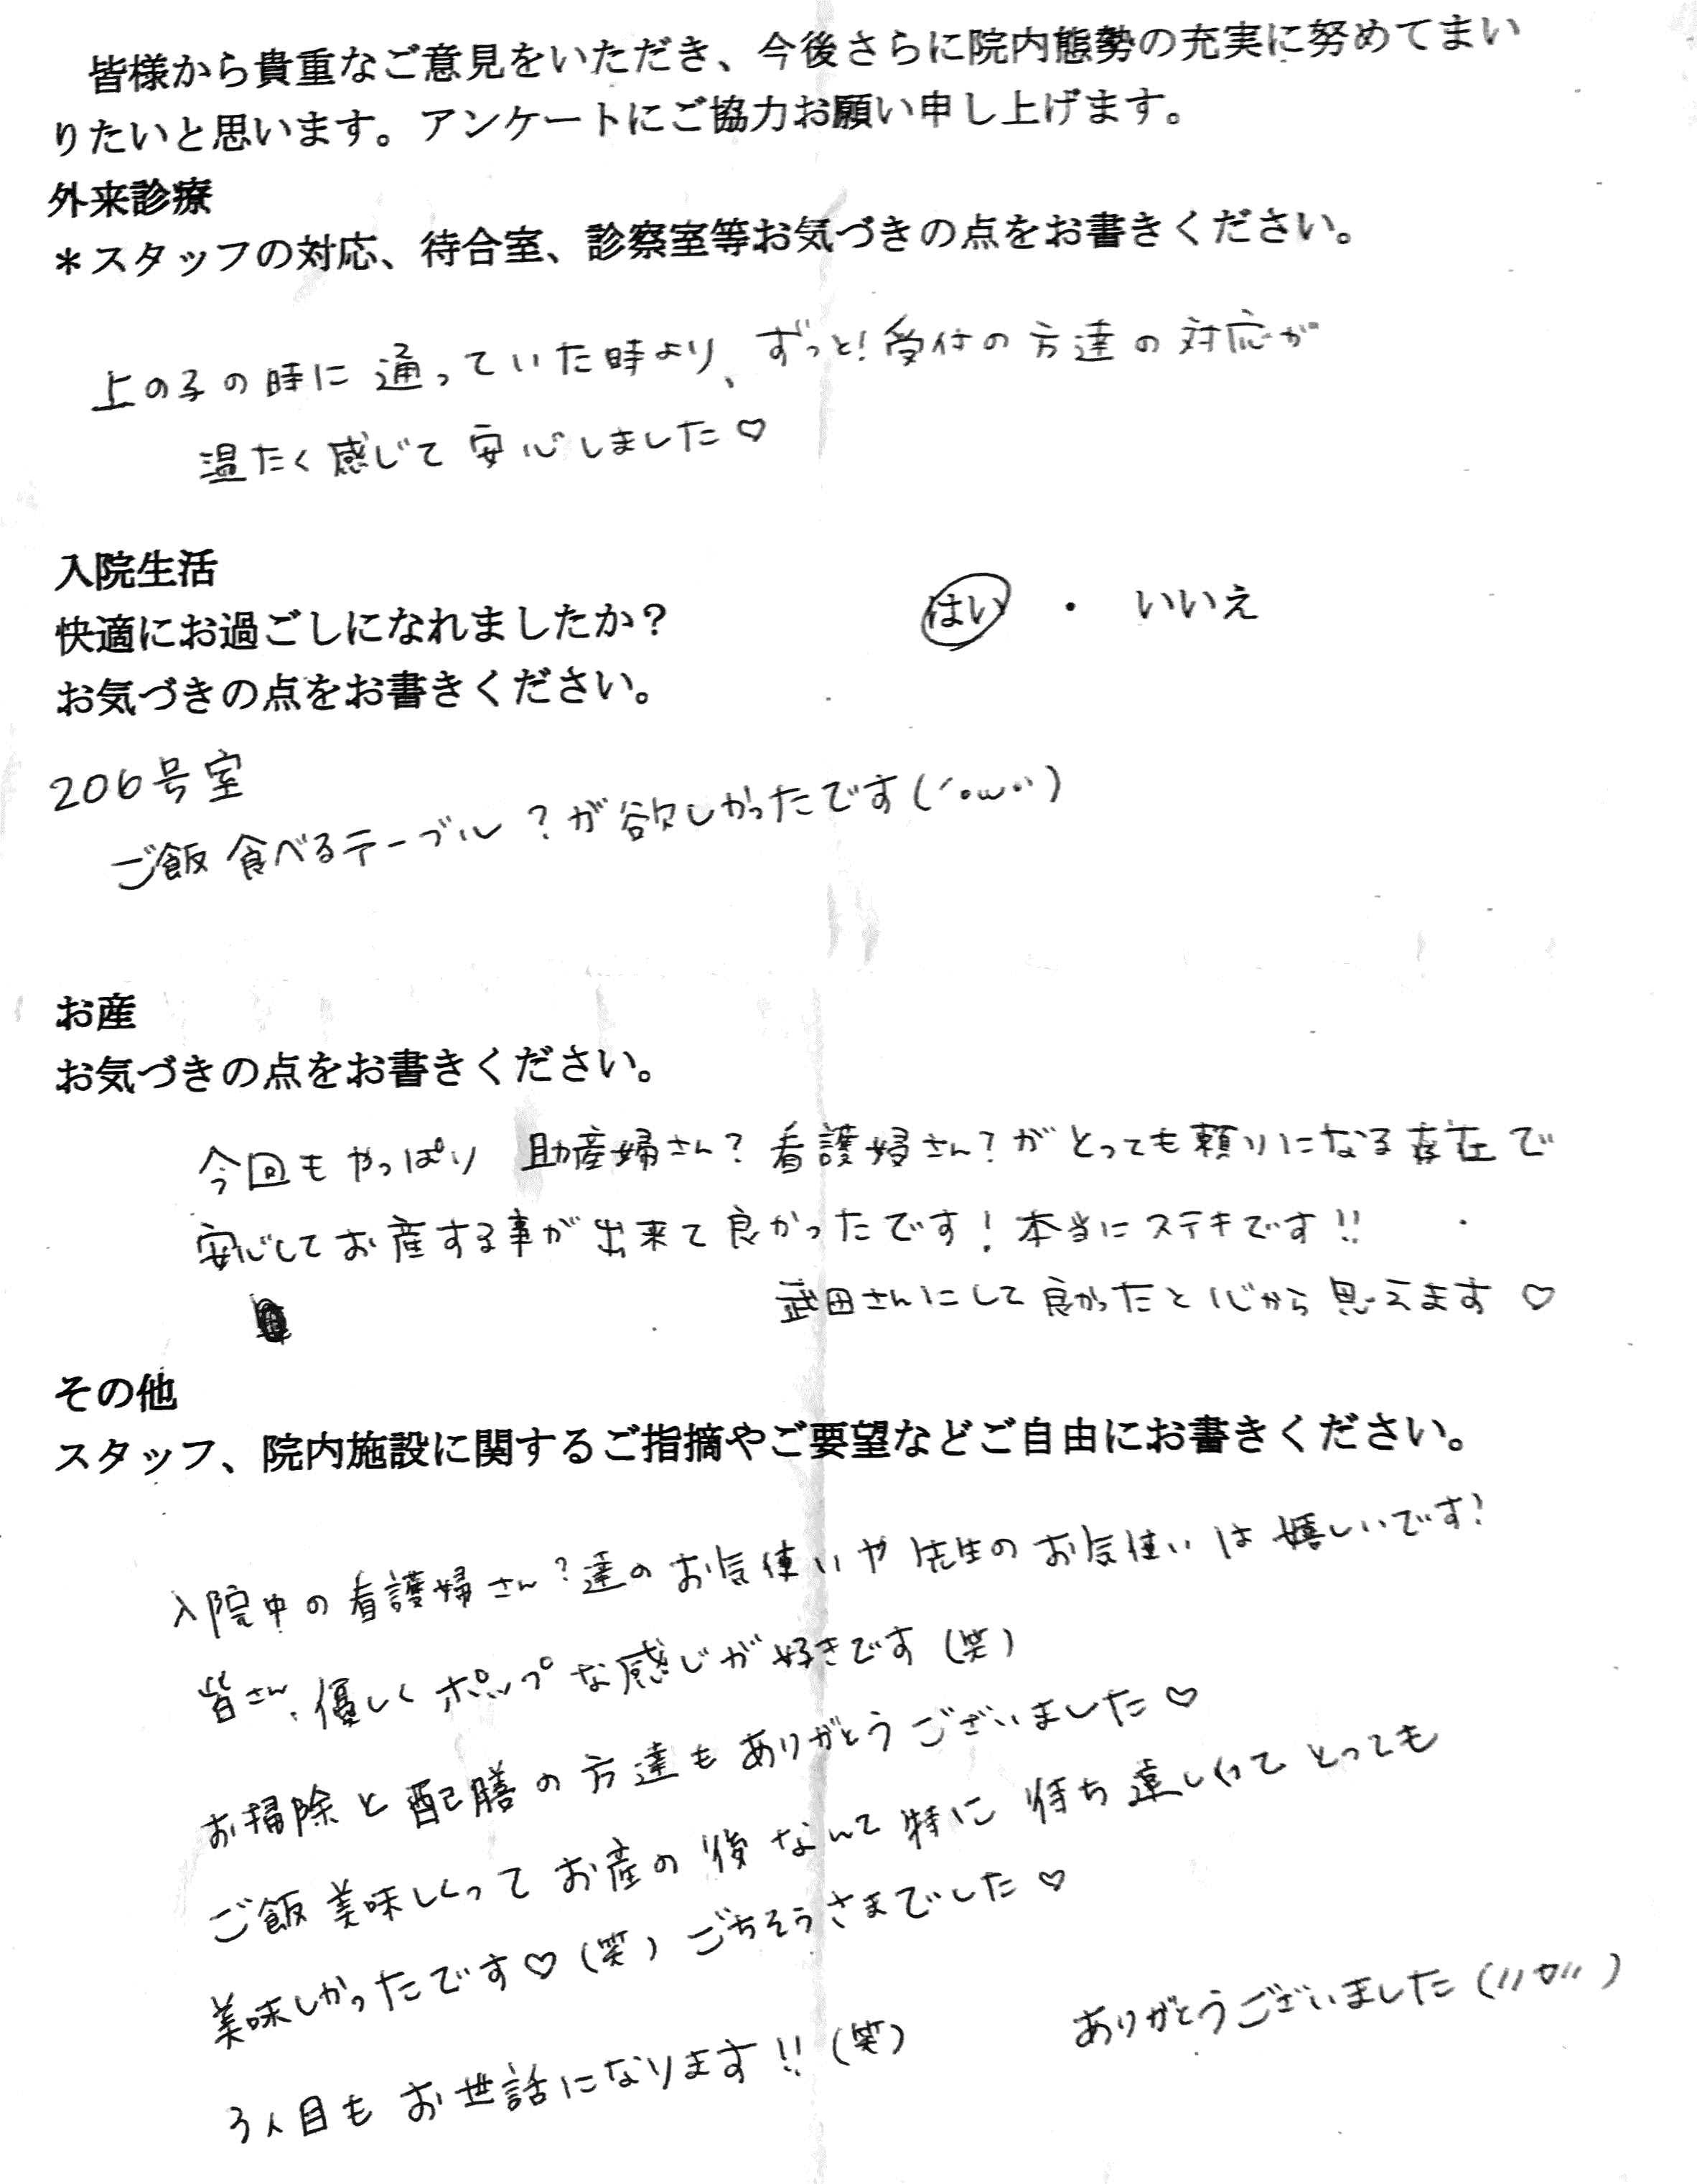 皆様から貴重なご意見をいただき、今後さらに院内態勢の充実に努めてまい
りたいと思います。アンケートにご協力お願い申し上げます。
外来診療
＊スタッフの対応、待合室、診察室等お気づきの点をお書きください。
上の子の時に通っていた時より、ずっと!受付の方達の対応が
温たく感じて安心しました♡
入院生活
快適にお過ごしになれましたか？ はい ・ いいえ
お気づきの点をお書きください。
206号室
ご飯食べるテーブル？が欲しかったです(´・ω・`)
お産
お気づきの点をお書きください。
今回もやっぱり 助産婦さん？看護婦さん？がとっても頼りになる存在で
安心してお産する事が出来て良かったです！本当にステキです!!
武田さんにして良かったと心から思えます♡
その他
スタッフ、院内施設に関するご指摘やご要望などご自由にお書きください。
入院中の看護婦さん？達のお気使いや先生のお気使いは嬉しいです!
皆さん、優しくポップな感じが好きです(笑)
お掃除と配膳の方達もありがとうございました♡
ご飯美味しくってお産の後なんて特に待ち遠しくってとっても
美味しかったです♡(笑)ごちそうさまでした♡
3人目もお世話になります!!(笑) ありがとうございました(〃▽〃)